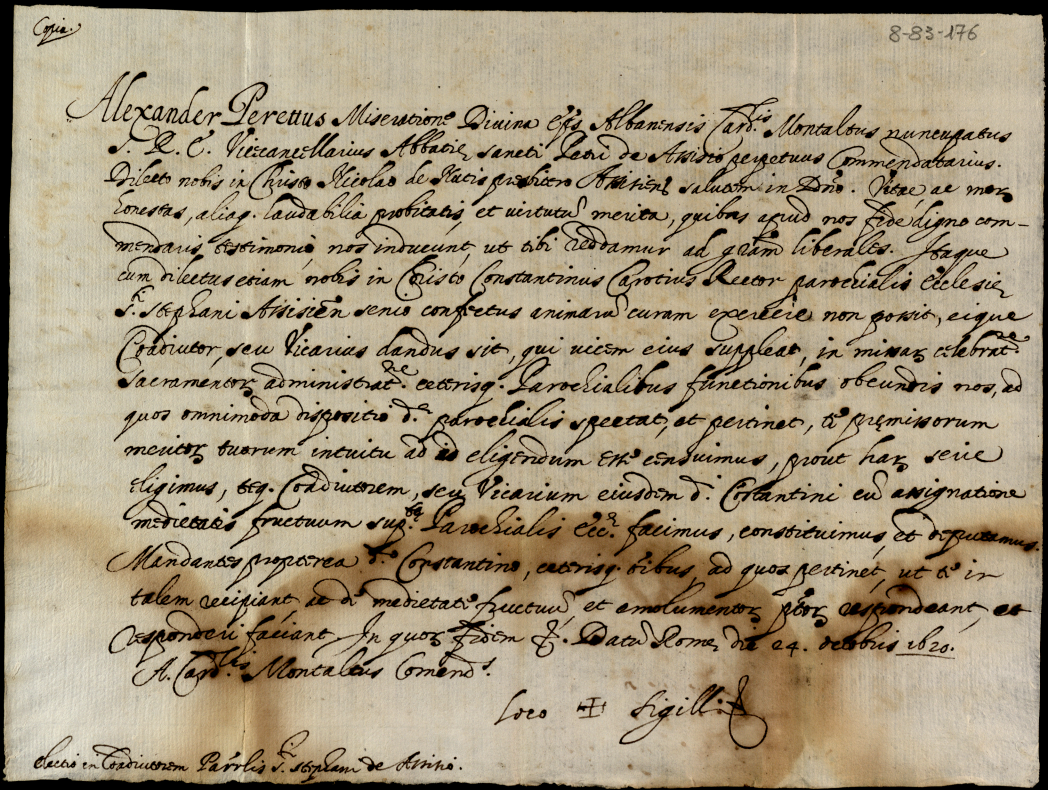 Copia.
8-83-176
Alexander Perettus Miseratione Divina Ep̃s Albanensis Card.lis Montaltus nuncupatus
S. R. E. Vicecancellarius Abbatię sancti Petri de Assisio perpetuus Commendatarius.
Dilecto nobis in Christo Nicolao de presbitero Assisien̄ salutem in Dño. Vitae, ac mor̨
honestas, aliaq. laudabilia probitatis et virtutũ merita, quibus apud nos fide digno com-
mendaris testimonio, nos inducunt, ut tibi reddamur ad grãm liberales. Itaque
cum dilectus etiam nobis in Christo Constantinus Carotius Rector parochialis Ecclesię
S.ti Stephani Assisieñ senio confectus animarũ curam exercere non possit, eique
Coadiutor, seu Vicarius dandus sit, qui vicem eius suppleat, in missar̨ celebrat.ne
sacramentor̨ administrat.ne ceterisq. Parochialibus functionibus obeundis nos, ad
quos omnimoda dispositio d.ę parochialis spectat, et pertinet, te pręmissorum
meritor̨ tuorum intuitu ad id eligendum esse censuimus, prout har̨ serie
eligimus, teq. Coadiutorem, seu Vicarium eiusdem d. Costantini cũ assignatione
medietatis fructuum sup.tę Parochialis Ecc.ę facimus, constituimus, et deputamus.
Mandantes propterea d.o Constantino, ceterisq. õibus, ad quos pertinet, ut te in
talem recipiant ac de medietate fructuũ et emolumentor̨ p̃tor̨ respondeant, et
responderi faciant. In quor̨ fidem &. Datũ Romę die 24. octobris 1620.
A. Card.lis Montaltus Comend.s
Loco ✠ Sigilli
Electio in Coadiutorem Parr̃lis S.ti Stephani de Assisio.